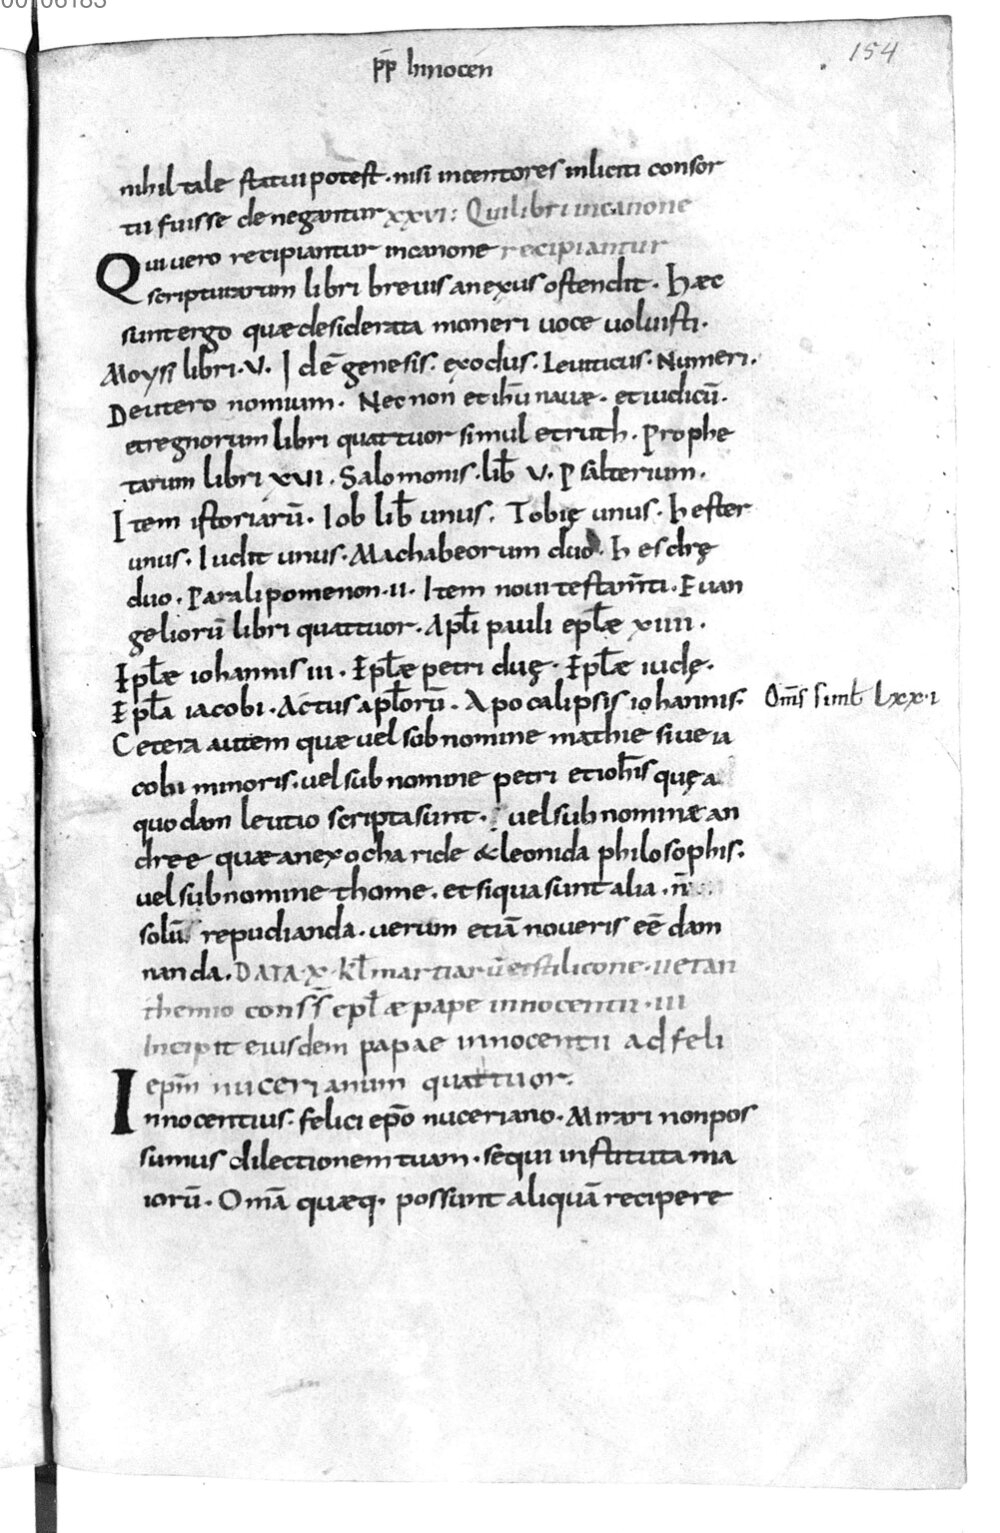 00106183
154
pp̄ Innocen
nihil tale statui potest · nisi incentores inliciti consor
tii fuisse denegantur xxvi : Qui libri in canone
Qui vero recipiantur in canone recipiantur
scripturarum libri brevis anexus ostendit · Hæc
sunt ergo quæ desiderata moneri uoce uoluisti ·
Moysi libri · V · Idē genesis · exodus · Leuiticus · Numeri ·
Deutero nomium · Nec non et ihū naue · et iudicū ·
et regnorum libri quattuor simul et ruth · Prophe
tarum libri xvi · Salomonis · lib̄ V · Psalterium ·
Item istoriarū · Iob lib̄ unus · Tobię unus · Hester
unus · Iudit unus · Machabeorum duo · Hesdrę
duo · Paralipomenon · ii · Item noui testam̄ti · Euan
geliorū libri quattuor · Apłi pauli epłæ xiiii ·
Epłæ iohannis iii · Epłæ petri duę · Epłæ iudę ·
Epła iacobi · Actus apłorū · Apocalipsis iohannis ·
Om̄s simł Lxx · i
Cetera autem quæ uel sob nomine mathie siue ia
cobi minoris · uel sub nomine petri et ioh̄is quę a
quodam leutio scripta sunt · uel sub nominæ an
dree quæ anexocharide & leonida philosophis ·
uel sub nomine thome · et siqua sunt alia · n̄
solū repudianda · uerum etiā noueris eē dam
nanda · DATA · x · kł martiarū et stilicone · ii et an
themio conss̄ epłæ pape innocentii · iii
Incipit eiusdem papae innocentii ad feli
epm̄ nucerianum quattuor ·
Innocentius · felici ep̄o nuceriano · Mirari non pos
sumus dilectionem tuam · sequi instituta ma
iorū · Omā quæq · possunt aliquā recipere